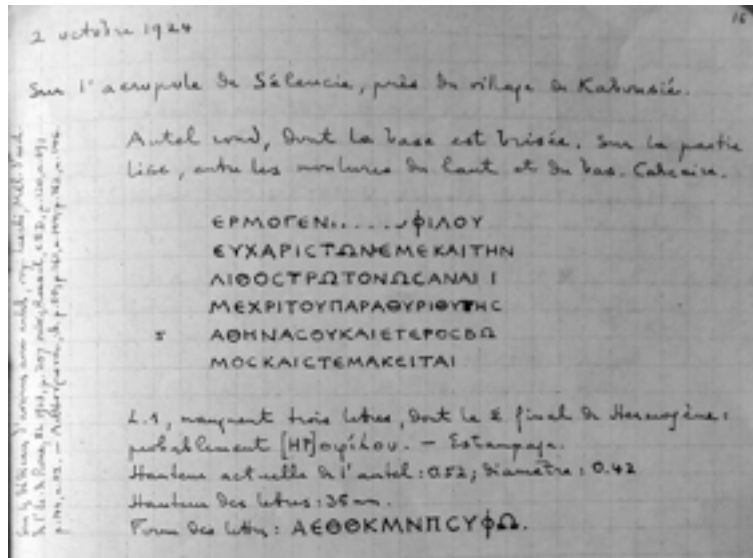 16
2 octobre 1924
Sur l'acropole de Séleucie, près du village de Kabousié.
Autel rond, dont la base est brisée. Sur la partie
lisse, entre les moulures du haut et du bas. Calcaire.
ΕΡΜΟΓΕΝ......ΦΙΛΟΥ
ΕΥΧΑΡΙϹΤΩΝΕΜΕΚΑΙΤΗΝ
ΛΙΘΟϹΤΡΩΤΟΝΩϹΑΝΑΙΙ
ΜΕΧΡΙΤΟΥΠΑΡΑΘΥΡΙΘΥΤΗϹ
5 ΑΘΗΝΑϹΟΥΚΑΙΕΤΕΡΟϹΒΩ
ΜΟϹΚΑΙϹΤΕΜΑΚΕΙΤΑΙ
L.1, manquent trois lettres, dont le Σ final de Hermogène:
probablement [ΗΡ]οφίλου. – Estampage.
Hauteur actuelle de l'autel: 0.52; diamètre: 0.42
Hauteur des lettres: 35mm.
Forme des lettres: ΑΕΘΘΚΜΝΠϹΥΦΩ.